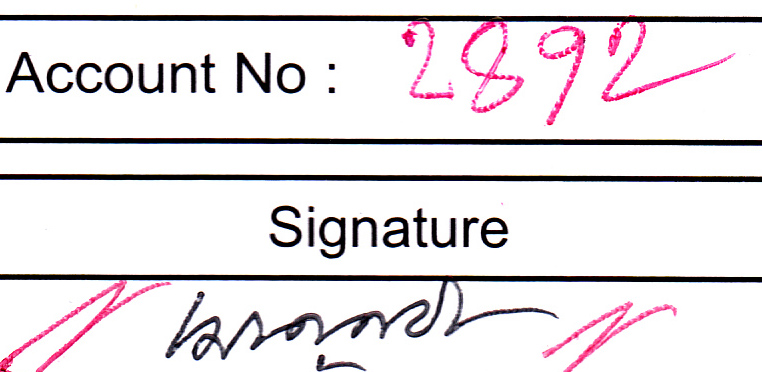 Account No : 2892
Signature